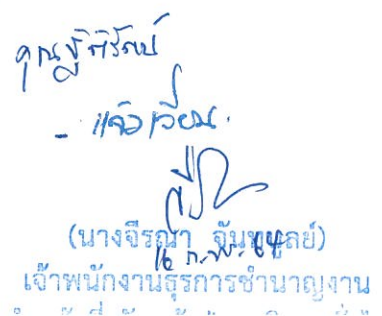 คุณฐิติรัตน์
- แจ้งเวียน.
(นางจีรณา จันทบูลย์)
16 ก.พ. 64
เจ้าพนักงานธุรการชำนาญงาน